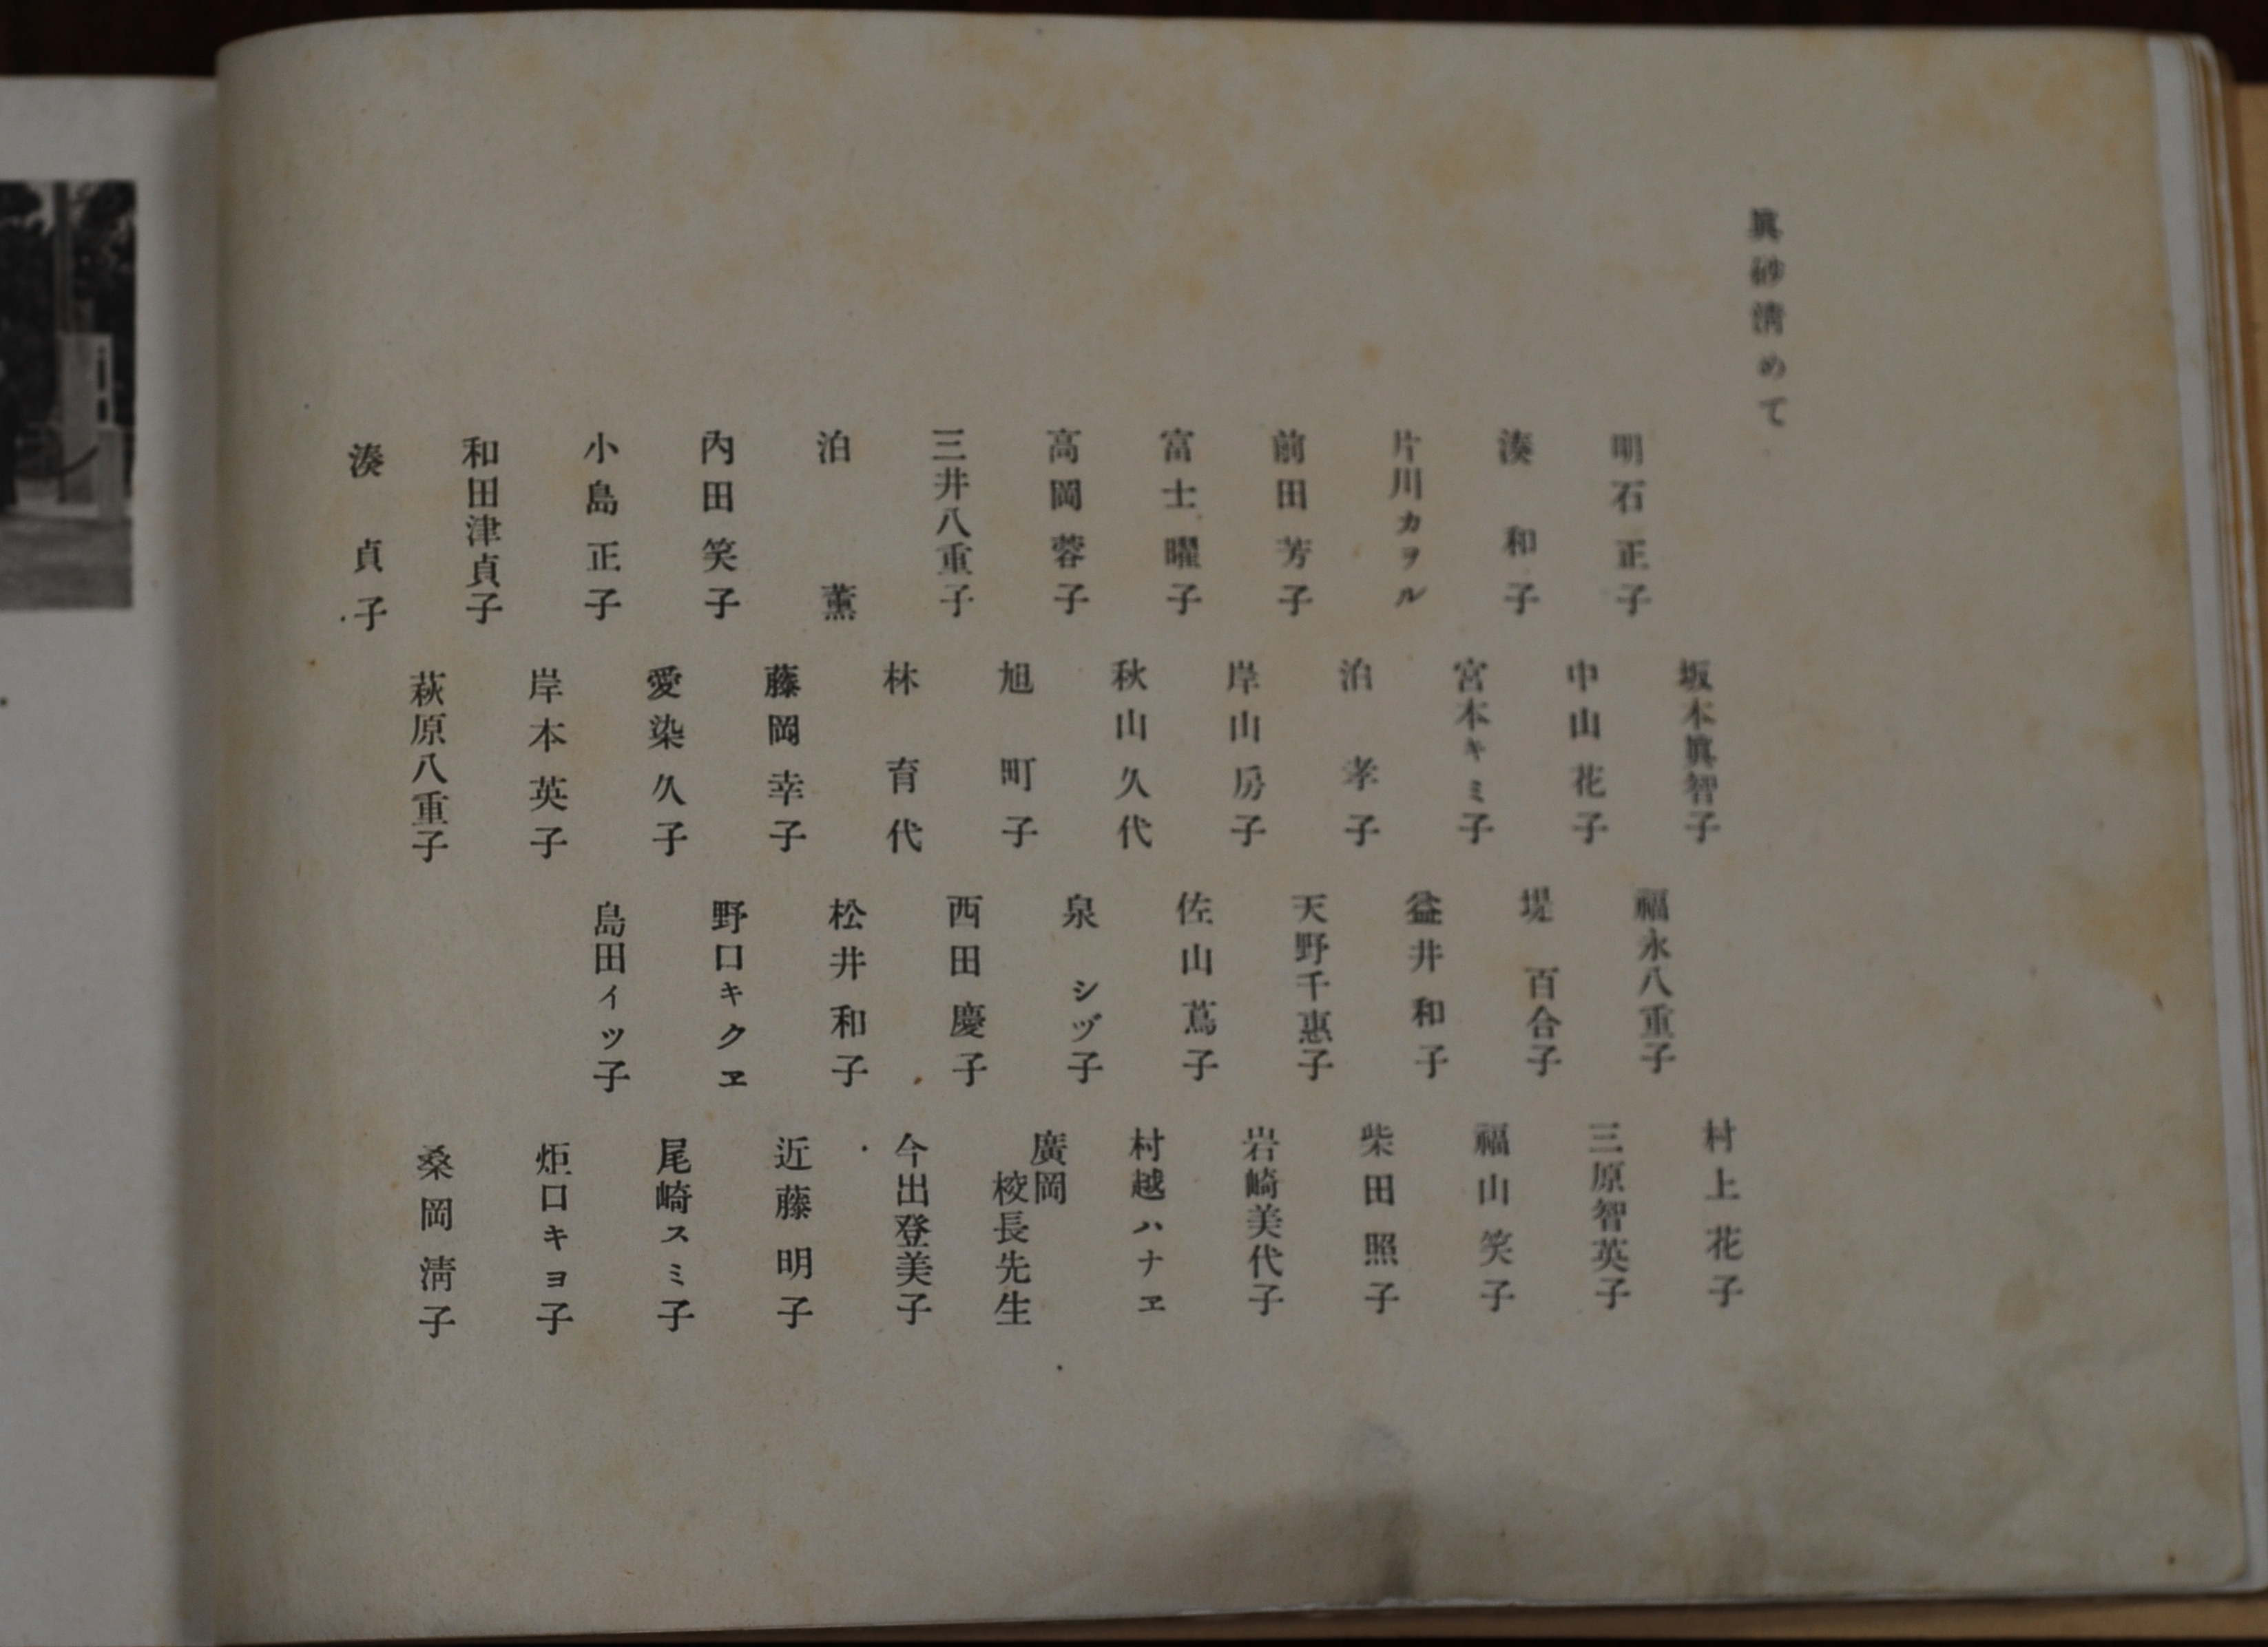 眞砂淸めて
明石正子
湊和子
片川カヲル
前田芳子
富士曜子
高岡蓉子
三井八重子
泊薫
內田笑子
小島正子
和田津貞子
湊貞子
坂本眞智子
中山花子
宮本キミ子
泊孝子
岸山房子
秋山久代
旭町子
林育代
藤岡幸子
愛染久子
岸本英子
萩原八重子
福永八重子
堤百合子
益井和子
天野千惠子
佐山蔦子
泉シヅ子
西田慶子
松井和子
野口キクヱ
島田イツ子
村上花子
三原智英子
福山笑子
柴田照子
岩崎美代子
村越ハナヱ
廣岡
校長先生
今出登美子
近藤明子
尾崎スミ子
炬口キヨ子
桑岡淸子